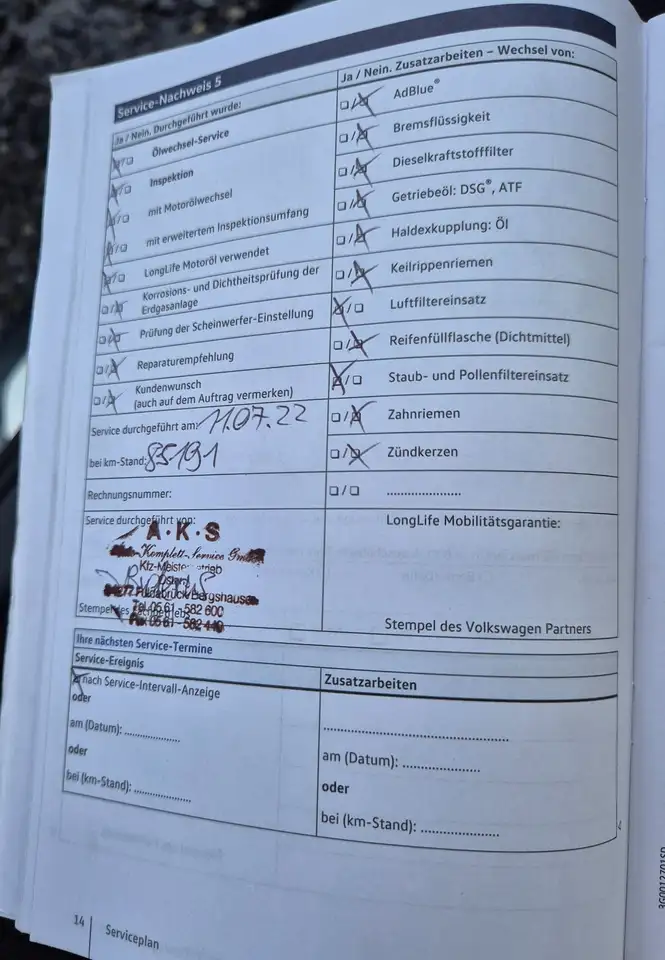 Service-Nachweis 5
Ja / Nein. Durchgeführt wurde:
Ölwechsel-Service
Inspektion
mit Motorölwechsel
mit erweitertem Inspektionsumfang
LongLife Motoröl verwendet
Korrosions- und Dichtheitsprüfung der
Erdgasanlage
Prüfung der Scheinwerfer-Einstellung
Reparaturempfehlung
Kundenwunsch
(auch auf dem Auftrag vermerken)
Service durchgeführt am: 11.07.22
bei km-Stand: 85191
Rechnungsnummer:
Service durchgeführt von:
A·K·S
Komplett-Service GmbH
Kfz-Meisterbetrieb
Bergshausen
Tel. 05 61 - 582 600
Fax 05 61 - 582 440
Stempel des
Ja / Nein. Zusatzarbeiten – Wechsel von:
AdBlue®
Bremsflüssigkeit
Dieselkraftstofffilter
Getriebeöl: DSG®, ATF
Haldexkupplung: Öl
Keilrippenriemen
Luftfiltereinsatz
Reifenfüllflasche (Dichtmittel)
Staub- und Pollenfiltereinsatz
Zahnriemen
Zündkerzen
/ ......................
LongLife Mobilitätsgarantie:
Stempel des Volkswagen Partners
Ihre nächsten Service-Termine
Service-Ereignis
nach Service-Intervall-Anzeige
oder
am (Datum): ................
oder
bei (km-Stand): ................
Zusatzarbeiten
......................................................
am (Datum): ......................
oder
bei (km-Stand): ......................
14 Serviceplan